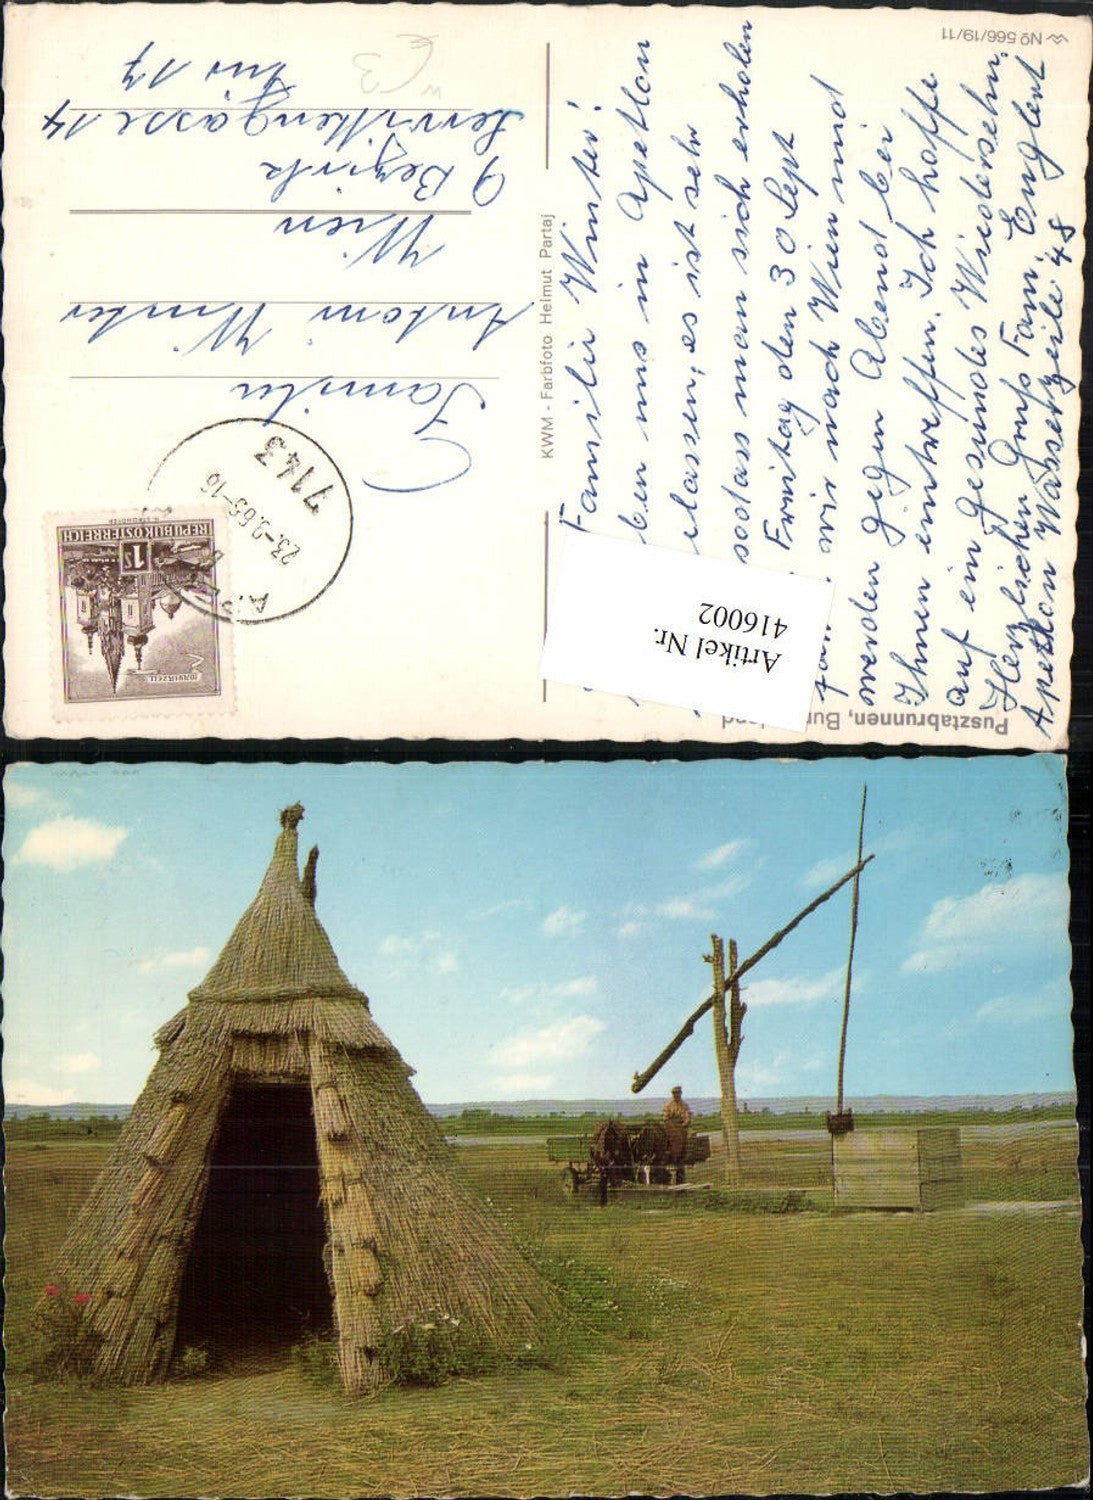 Familie Winter!
ben uns in Apetlon
lassen, es ist sehr
sodass man sich erholen
Freitag den 30 Sept
wir nach Wien und
werden gegen Abend bei
Ihnen eintreffen. Ich hoffe
auf ein gesundes Wiedersehn.
Herzlichen Gruß Fam. Englert
Apetlon Wasserzeile 48
Familie
Anton Winter
Wien
9 Bezirk
Servitengasse 14
Tür 17
KWM - Farbfoto Helmut Partaj
Nº 566/19/11
Pusztabrunnen, Bur
land
Artikel Nr.
416002
REPUBLIK ÖSTERREICH
1S
MARIAZELL
7143
23.-9.65-16